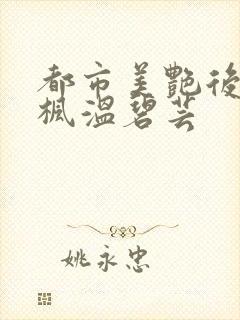 都市美艷後
楓溫碧芸
姚永忠